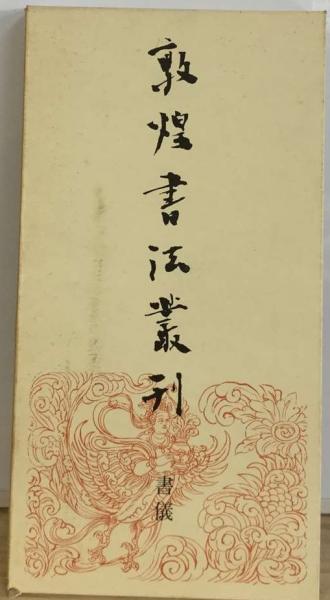 敦煌書法叢刊
書儀